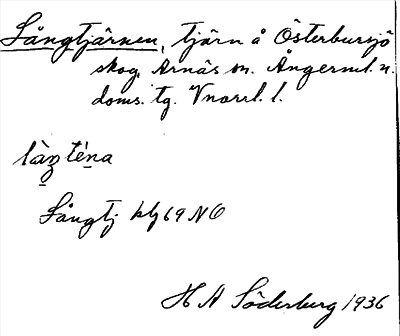 Långtjärnen, tjärn å Österbursjö
skog, Arnäs sn. Ångerml. n.
doms. tg. Vnorrl. l.
làŋténa
Långtj kbl 69 NO
H A Söderburg 1936